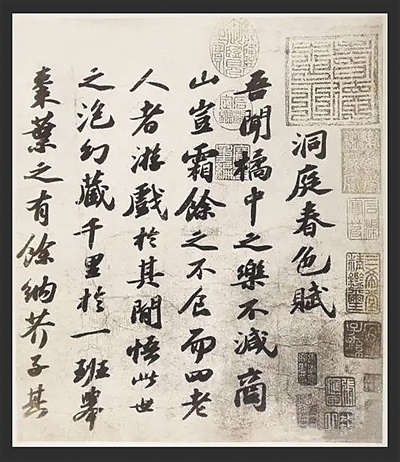 洞庭春色賦
吾聞橘中之樂不減商
山豈霜餘之不食而四老
人者游戲於其間悟此世
之泡幻藏千里於一班舉
棗葉之有餘納芥子其
三希堂精鑑璽
宜子孫